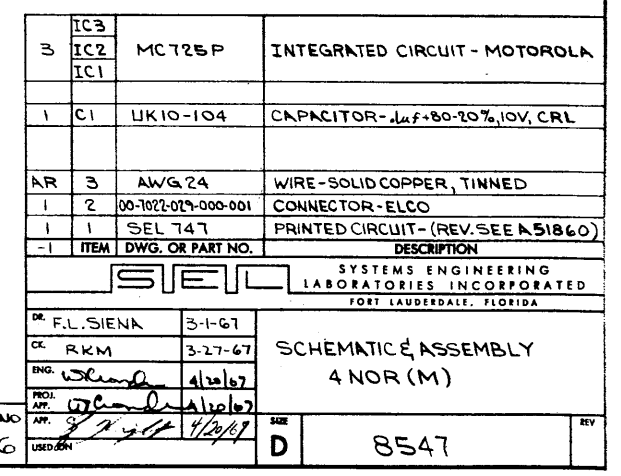 IC3
3 IC2 MC725P INTEGRATED CIRCUIT - MOTOROLA
IC1
1 C1 UK10-104 CAPACITOR-.1uf+80-20%,10V, CRL
AR 3 AWG 24 WIRE-SOLID COPPER, TINNED
1 2 00-7022-029-000-001 CONNECTOR-ELCO
1 1 SEL 747 PRINTED CIRCUIT-(REV. SEE A51860)
-1 ITEM DWG. OR PART NO. DESCRIPTION
SEL
SYSTEMS ENGINEERING
LABORATORIES INCORPORATED
FORT LAUDERDALE, FLORIDA
DR. F.L. SIENA 3-1-67
CK. RKM 3-27-67
SCHEMATIC & ASSEMBLY
4 NOR (M)
ENG. 4/20/67
PROJ. APP. 4/20/67
APP. 4/20/67
USED ON
SIZE D 8547 REV
NO
6